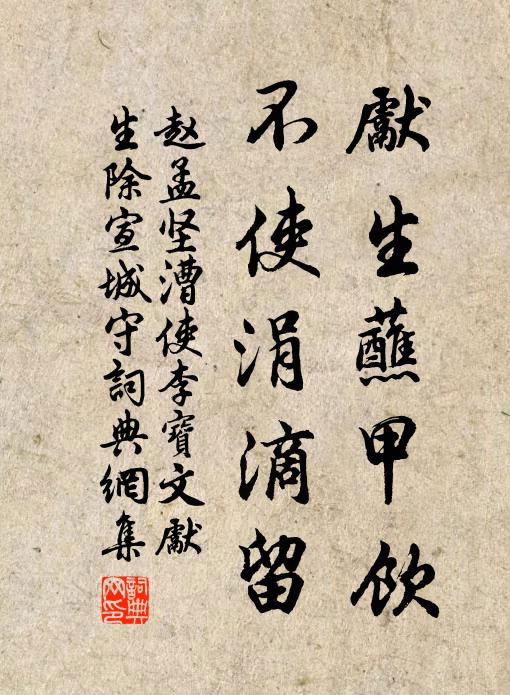 獻生蘸甲飲
不使涓滴留
赵孟坚漕使李寶文獻
生除宣城守詞典網集
詞典网印